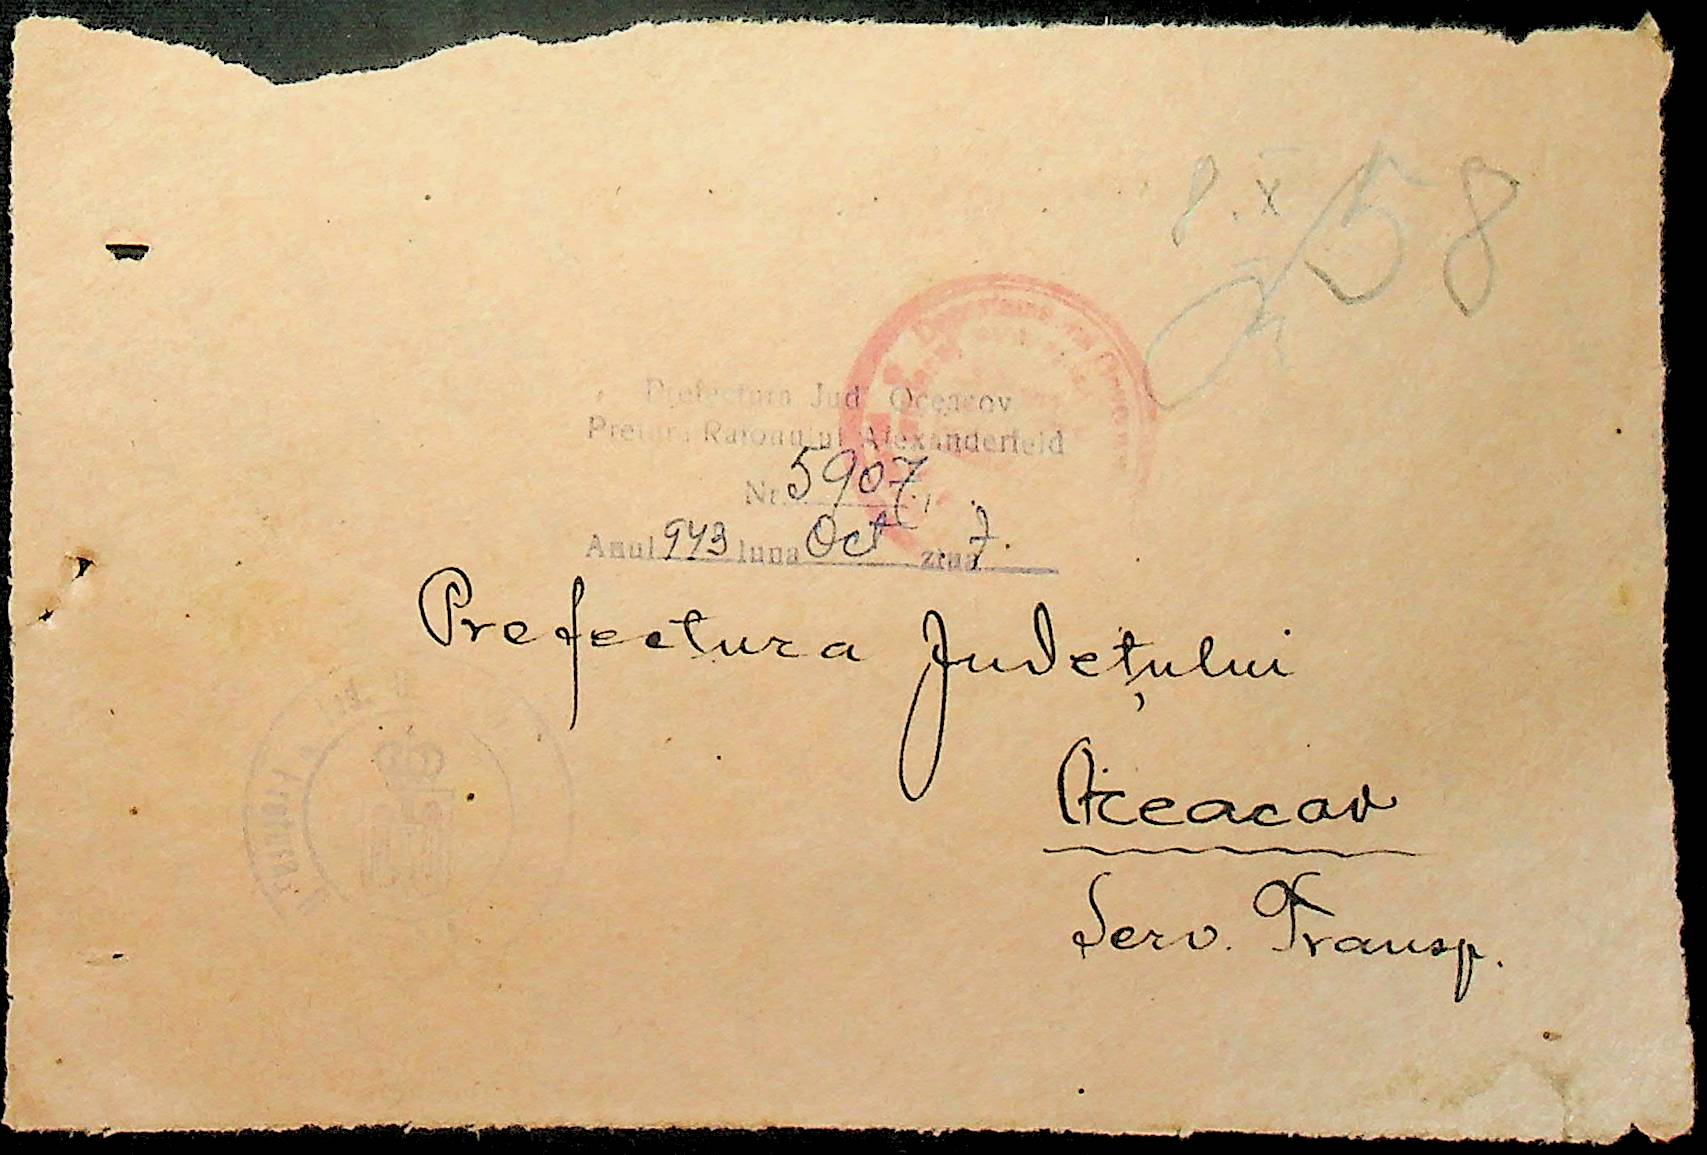 8.X
58
Prefectura Jud. Oceacov
Pretura Raionului Alexanderfeld
Nr. 5907
Anul 943 luna Oct ziua 7.
Prefectura Județului
Oceacov
Serv. Transp.
Pretura